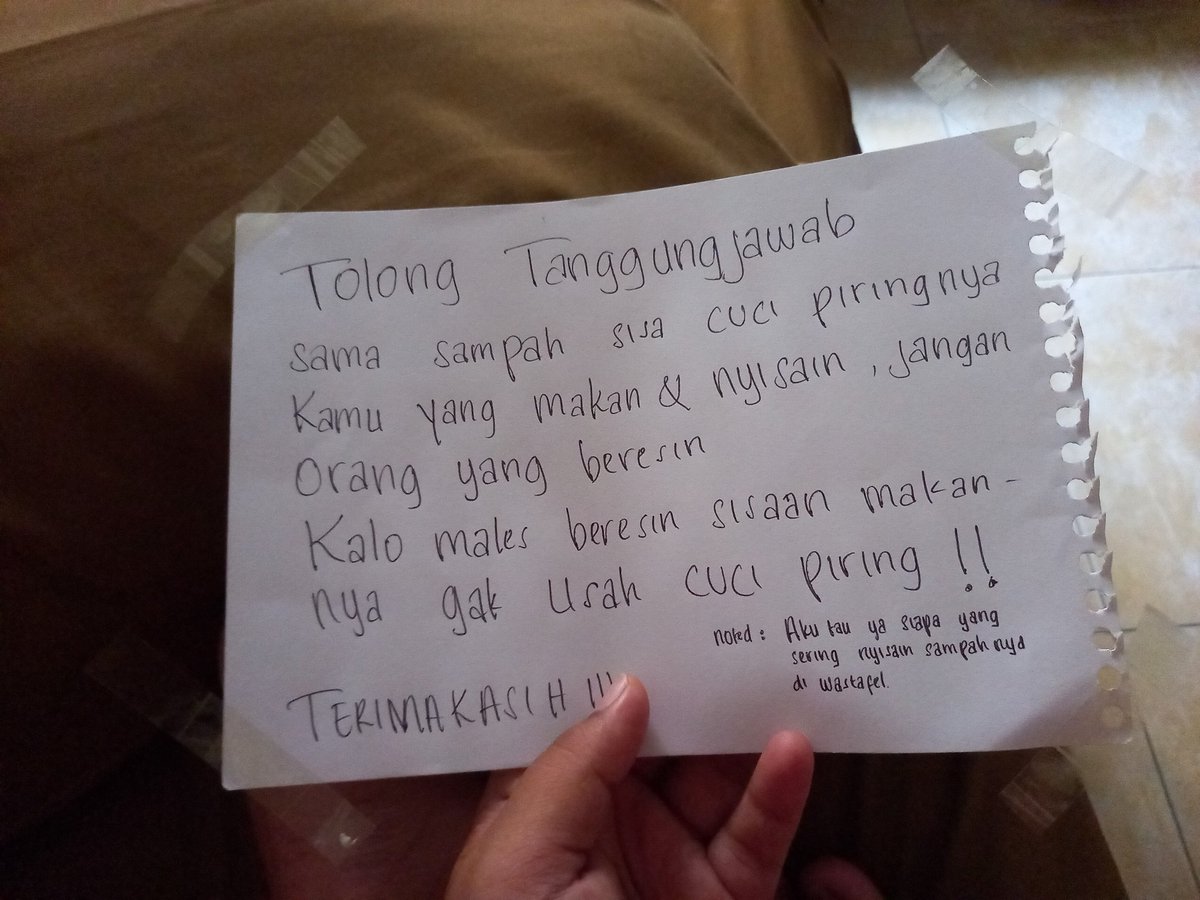 Tolong Tanggungjawab
sama sampah sisa cuci piringnya
Kamu yang makan & nyisain , jangan
orang yang beresin
Kalo males beresin sisaan makan-
nya gak usah cuci piring !!
noted : Aku tau ya siapa yang
sering nyisain sampahnya
di wastafel.
TERIMAKASIH !!!